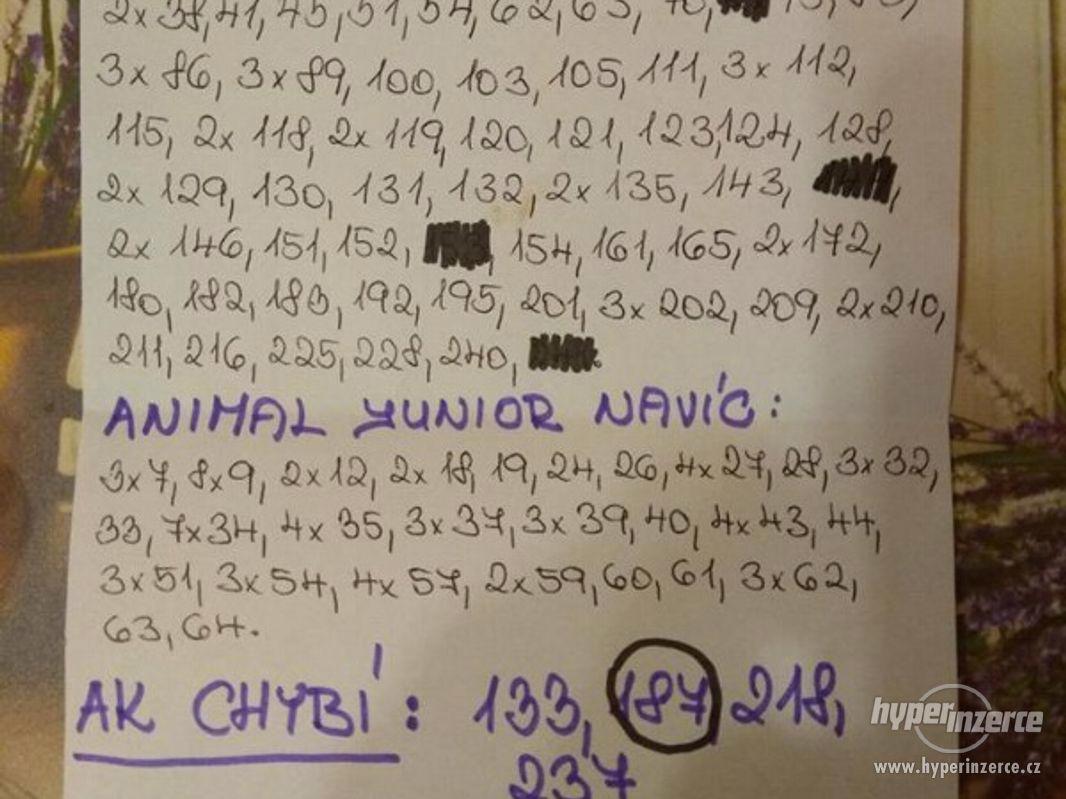 2x 38, 41, 45, 51, 54, 62, 65, 70,
3x 86, 3x 89, 100, 103, 105, 111, 3x 112,
115, 2x 118, 2x 119, 120, 121, 123, 124, 128,
2x 129, 130, 131, 132, 2x 135, 143,
2x 146, 151, 152, 154, 161, 165, 2x 172,
180, 182, 183, 192, 195, 201, 3x 202, 209, 2x 210,
211, 216, 225, 228, 240,
ANIMAL YUNIOR NAVÍC:
3x 7, 8x 9, 2x 12, 2x 18, 19, 24, 26, 4x 27, 28, 3x 32,
33, 7x 34, 4x 35, 3x 37, 3x 39, 40, 4x 43, 44,
3x 51, 3x 54, 4x 57, 2x 59, 60, 61, 3x 62,
63, 64.
AK CHYBÍ: 133, 187, 218,
237
hyperinzerce
www.hyperinzerce.cz